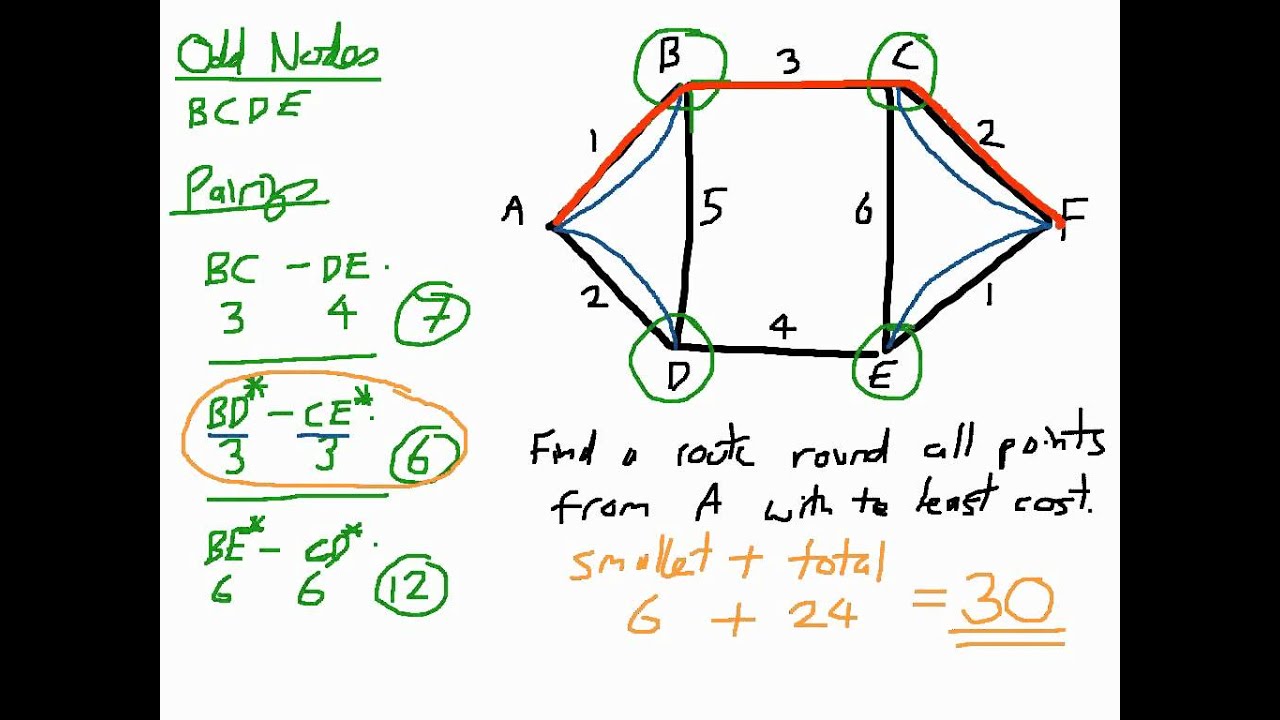 Odd Nodes
BCDE
Pairings
BC - DE.
3 4 7
BD* - CE*.
3 3 6
BE* - CD*.
6 6 12
B 3 C
1 2
A 5 6 F
2 1
4
D E
Find a route round all points
from A with te least cost.
smallet + total
6 + 24 = 30